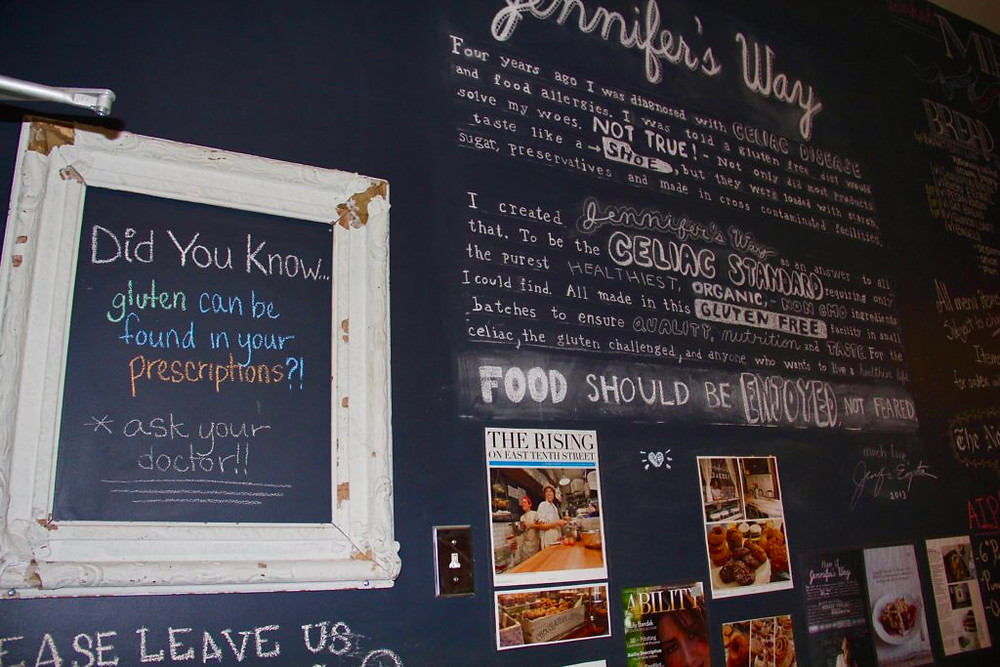 Jennifer's Way
Four years ago I was diagnosed with CELIAC DISEASE
and food allergies. I was told a gluten free diet would
solve my woes. NOT TRUE! - Not only did most products
taste like a → SHOE, but they were loaded with starch,
sugar, preservatives and made in cross contaminated facilities.
I created Jennifer's Way as an answer to all
that. To be the CELIAC STANDARD requiring only
the purest HEALTHIEST, ORGANIC, - NON GMO ingredients
I could find. All made in this GLUTEN FREE facility in small
batches to ensure QUALITY, nutrition and TASTE. For the
celiac, the gluten challenged, and anyone who wants to live a healthier life
FOOD SHOULD BE ENJOYED, NOT FEARED
much love
2013
Did You Know...
gluten can be
found in your
prescriptions?!
* ask your
doctor!!
EASE LEAVE US
THE RISING
ON EAST TENTH STREET
ABILITY
Jennifer's Way
BREAD
All menu
The